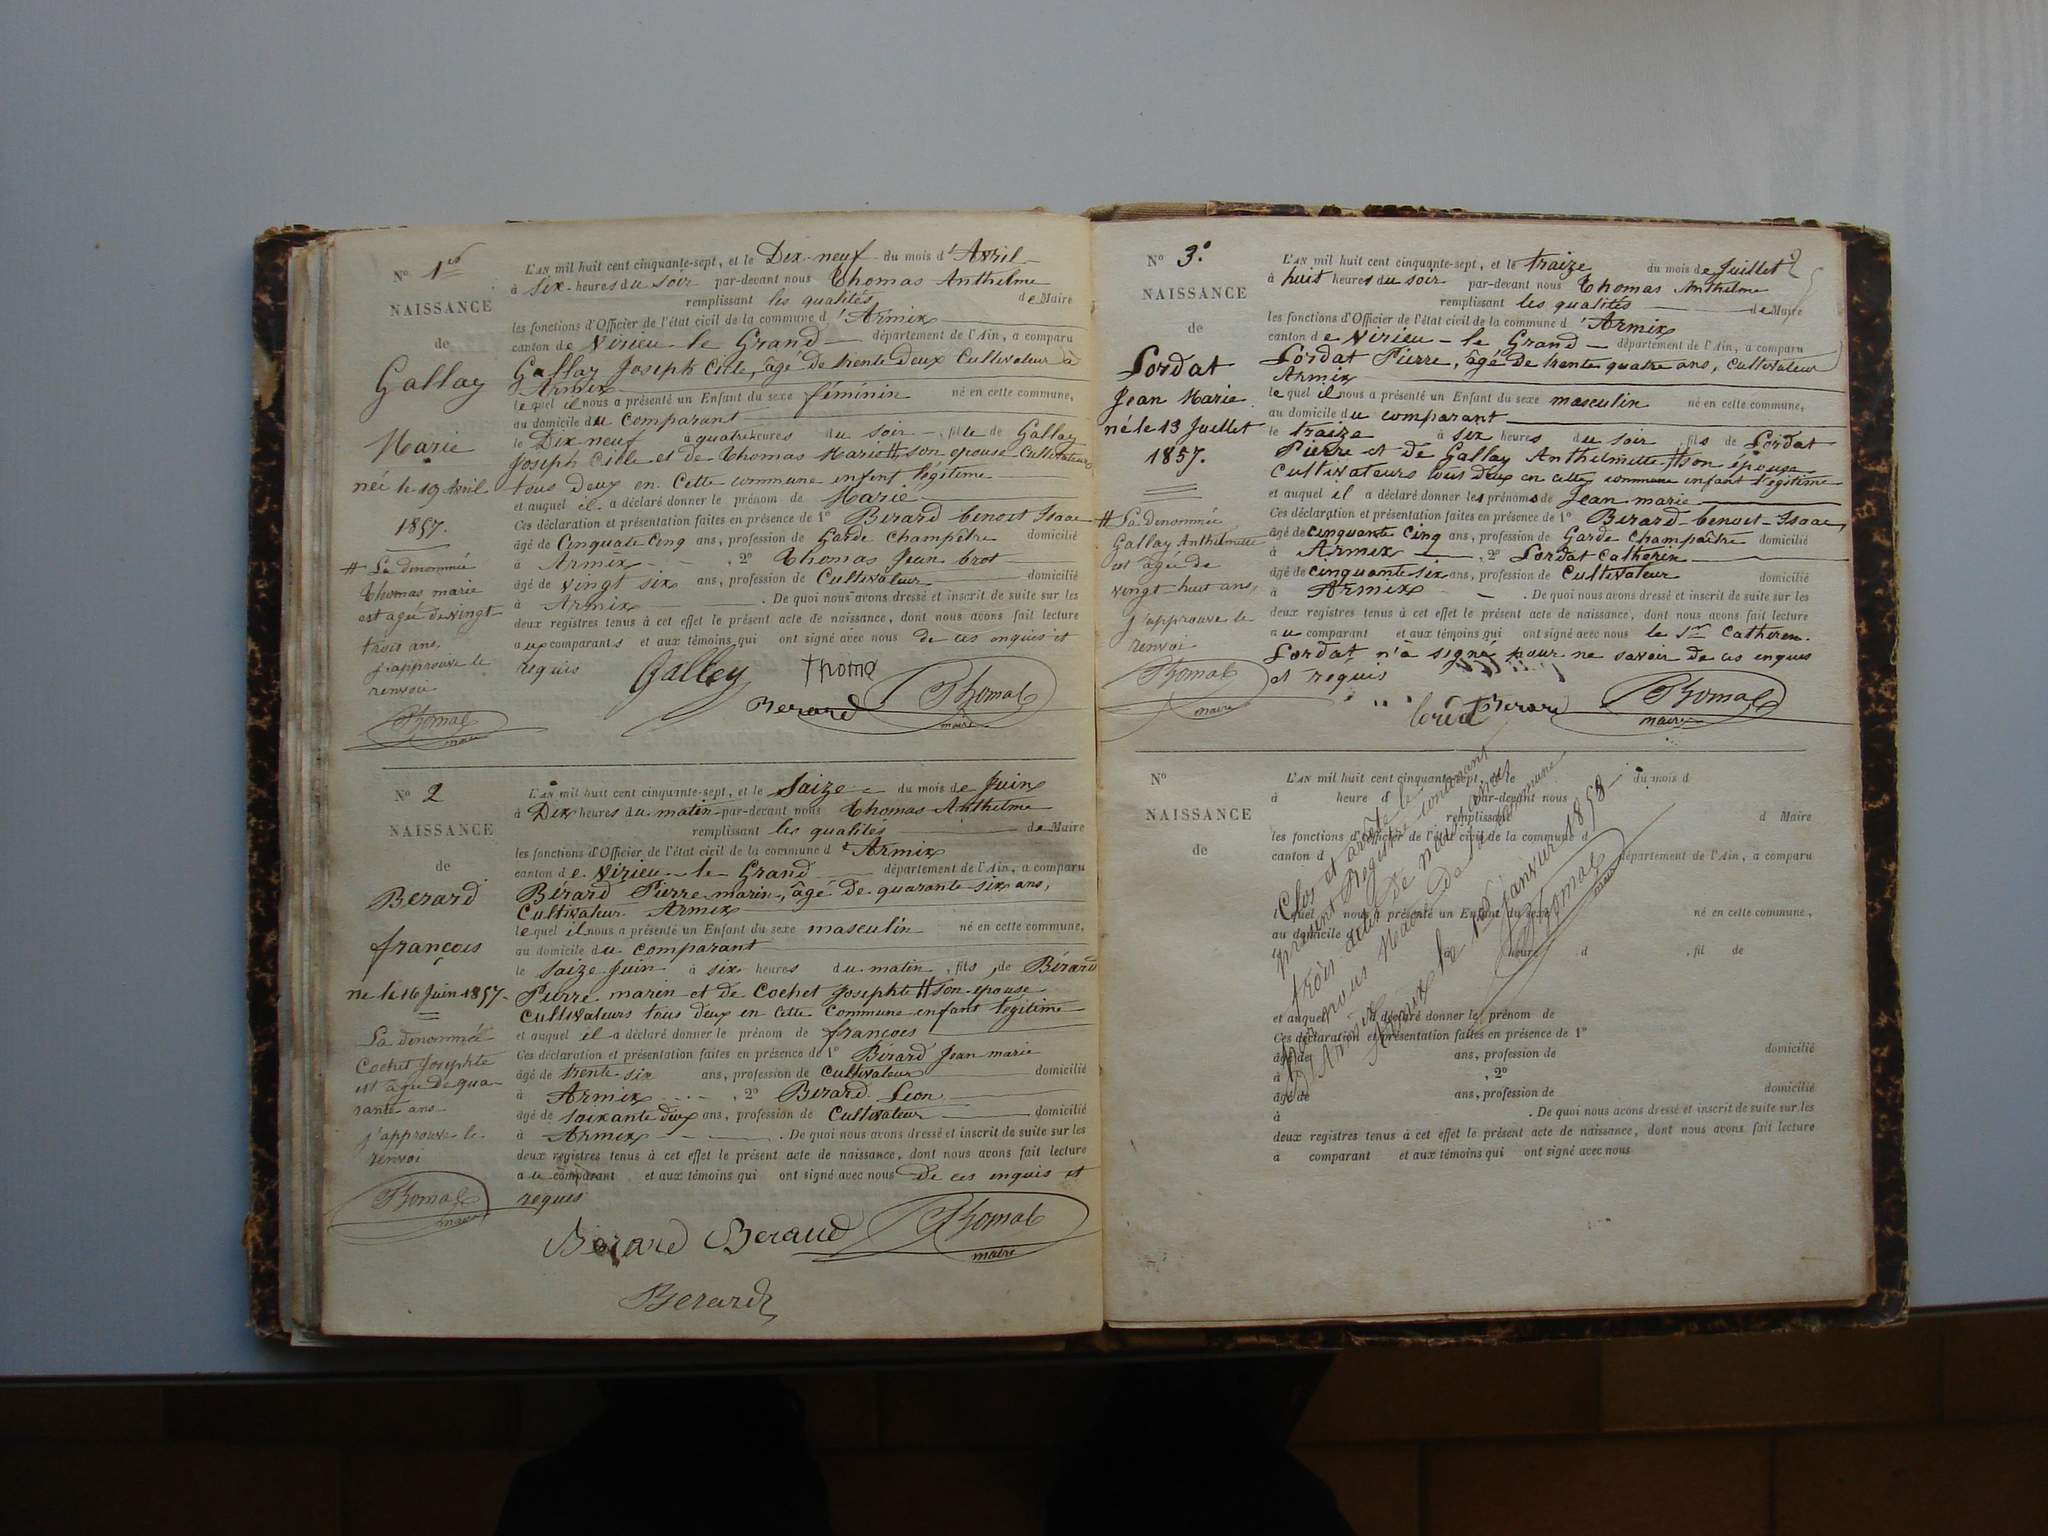 No 1er
NAISSANCE
de
Gallay
Marie
née le 19 Avril
1857.
# La dénommée
Thomas marie
est agée de vingt
trois ans,
j'approuve le
renvoi
Thomas
maire
L'AN mil huit cent cinquante-sept, et le Dix-neuf du mois d'Avril
à six heures du soir par-devant nous Thomas Anthelme
remplissant les qualités de Maire
les fonctions d'Officier de l'état civil de la commune d'Armix
canton de Virieu-le Grand département de l'Ain, a comparu
Gallay Joseph Cille, âgé de trente deux Cultivateur à
Armix
lequel il nous a présenté un Enfant du sexe féminin né en cette commune,
au domicile du comparant
le Dix-neuf à quatre heures du soir, fille de Gallay
Joseph Cille et de Thomas Marie # son épouse Cultivateurs
tous deux en Cette commune enfent légitime
et auquel il a déclaré donner le prénom de Marie
Ces déclaration et présentation faites en présence de 1° Bérard benoit Isaac
âgé de Cinquate Cinq ans, profession de Garde Champêtre domicilié
à Armix, 2° Thomas Jean brot
âgé de vingt six ans, profession de Cultivateur domicilié
à Armix. De quoi nous avons dressé et inscrit de suite sur les
deux registres tenus à cet effet le présent acte de naissance, dont nous avons fait lecture
aux comparants et aux témoins qui ont signé avec nous de ces enquis et
requis
Galley Thoma
Berard Thomas
maire
No 2
NAISSANCE
de
Berard
françois
né le 16 Juin 1857.
La dénommée
Cochet Josephte
est âgée de qua-
rante ans
j'approuve le
renvoi
Thomas
maire
L'AN mil huit cent cinquante-sept, et le Saize du mois de Juin
à Dix heures du matin par-devant nous Thomas Anthelme
remplissant les qualités de Maire
les fonctions d'Officier de l'état civil de la commune d'Armix
canton de Virieu-le Grand département de l'Ain, a comparu
Bérard Pierre marin, âgé de quarante six ans,
Cultivateur Armix
lequel il nous a présenté un Enfant du sexe masculin né en cette commune,
au domicile du comparant
le Saize Juin à six heures du matin, fils de Bérard
Pierre marin et de Cochet Josephte # son épouse
Cultivateurs tous deux en cette Commune enfant légitime
et auquel il a déclaré donner le prénom de françois
Ces déclaration et présentation faites en présence de 1° Bérard Jean marie
âgé de trente six ans, profession de Cultivateur domicilié
à Armix, 2° Berard Leon
âgé de soixante deux ans, profession de Cultivateur domicilié
à Armix. De quoi nous avons dressé et inscrit de suite sur les
deux registres tenus à cet effet le présent acte de naissance, dont nous avons fait lecture
au comparant et aux témoins qui ont signé avec nous De ces enquis et
requis
Bérard Beraud Thomas
maire
Berard
No 3°
NAISSANCE
de
Lordat
Jean Marie
né le 13 Juillet
1857.
# La dénommée
Gallay Anthelmette
est âgée de
vingt-huit ans,
j'approuve le
renvoi
Thomas
maire
L'AN mil huit cent cinquante-sept, et le traize du mois de Juillet
à huit heures du soir par-devant nous Thomas Anthelme
remplissant les qualités de Maire
les fonctions d'Officier de l'état civil de la commune d'Armix
canton de Virieu-le Grand département de l'Ain, a comparu
Lordat Pierre, âgé de trente quatre ans, Cultivateur
Armix
lequel il nous a présenté un Enfant du sexe masculin né en cette commune,
au domicile du comparant
le traize à six heures du soir, fils de Lordat
Pierre et de Gallay Anthelmette # son épouse
Cultivateurs tous deux en cette commune enfant légitime
et auquel il a déclaré donner les prénoms de Jean marie
Ces déclaration et présentation faites en présence de 1° Berard benoit-Isaac
âgé de cinquante Cinq ans, profession de Garde Champaître domicilié
à Armix, 2° Lordat Catherin
âgé de cinquante six ans, profession de Cultivateur domicilié
à Armix. De quoi nous avons dressé et inscrit de suite sur les
deux registres tenus à cet effet le présent acte de naissance, dont nous avons fait lecture
au comparant et aux témoins qui ont signé avec nous le Sr Catherin
Lordat n'a signé pour ne savoir de ces enquis
et requis
Berard Thomas
maire
No
NAISSANCE
de
L'AN mil huit cent cinquante-sept, et le du mois d
à heure d par-devant nous
remplissant d Maire
les fonctions d'Officier de l'état civil de la commune d
canton d département de l'Ain, a comparu
l quel nous a présenté un Enfant du sexe né en cette commune,
au domicile d
le à heure d, fil de
et auquel il a déclaré donner le prénom de
Ces déclaration et présentation faites en présence de 1°
âgé de ans, profession de domicilié
à, 2°
âgé de ans, profession de domicilié
à. De quoi nous avons dressé et inscrit de suite sur les
deux registres tenus à cet effet le présent acte de naissance, dont nous avons fait lecture
a comparant et aux témoins qui ont signé avec nous
Clos et arrêté le
présent Registre contenant
trois actes de naissances
par nous Maire de la commune
d'Armix
Armix le 1er janvier 1858
Thomas
maire